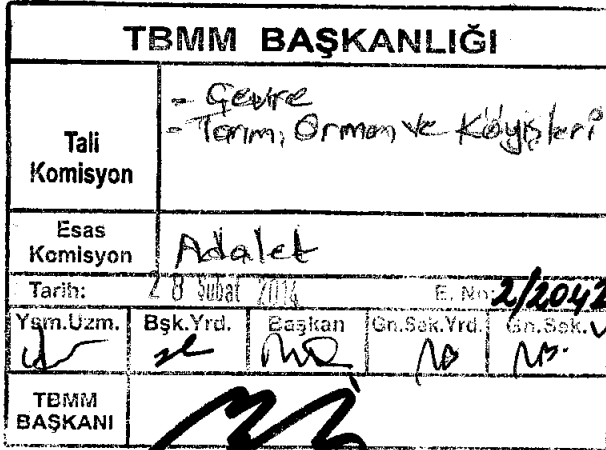 TBMM BAŞKANLIĞI
Tali Komisyon
- Çevre
- Tarım, Orman ve Köyişleri
Esas Komisyon
Adalet
Tarih: 28 Şubat 2014 E. No: 2/2042
Ysm.Uzm. Bşk.Yrd. Başkan Gn.Sek.Yrd. Gn.Sek. V
TBMM BAŞKANI